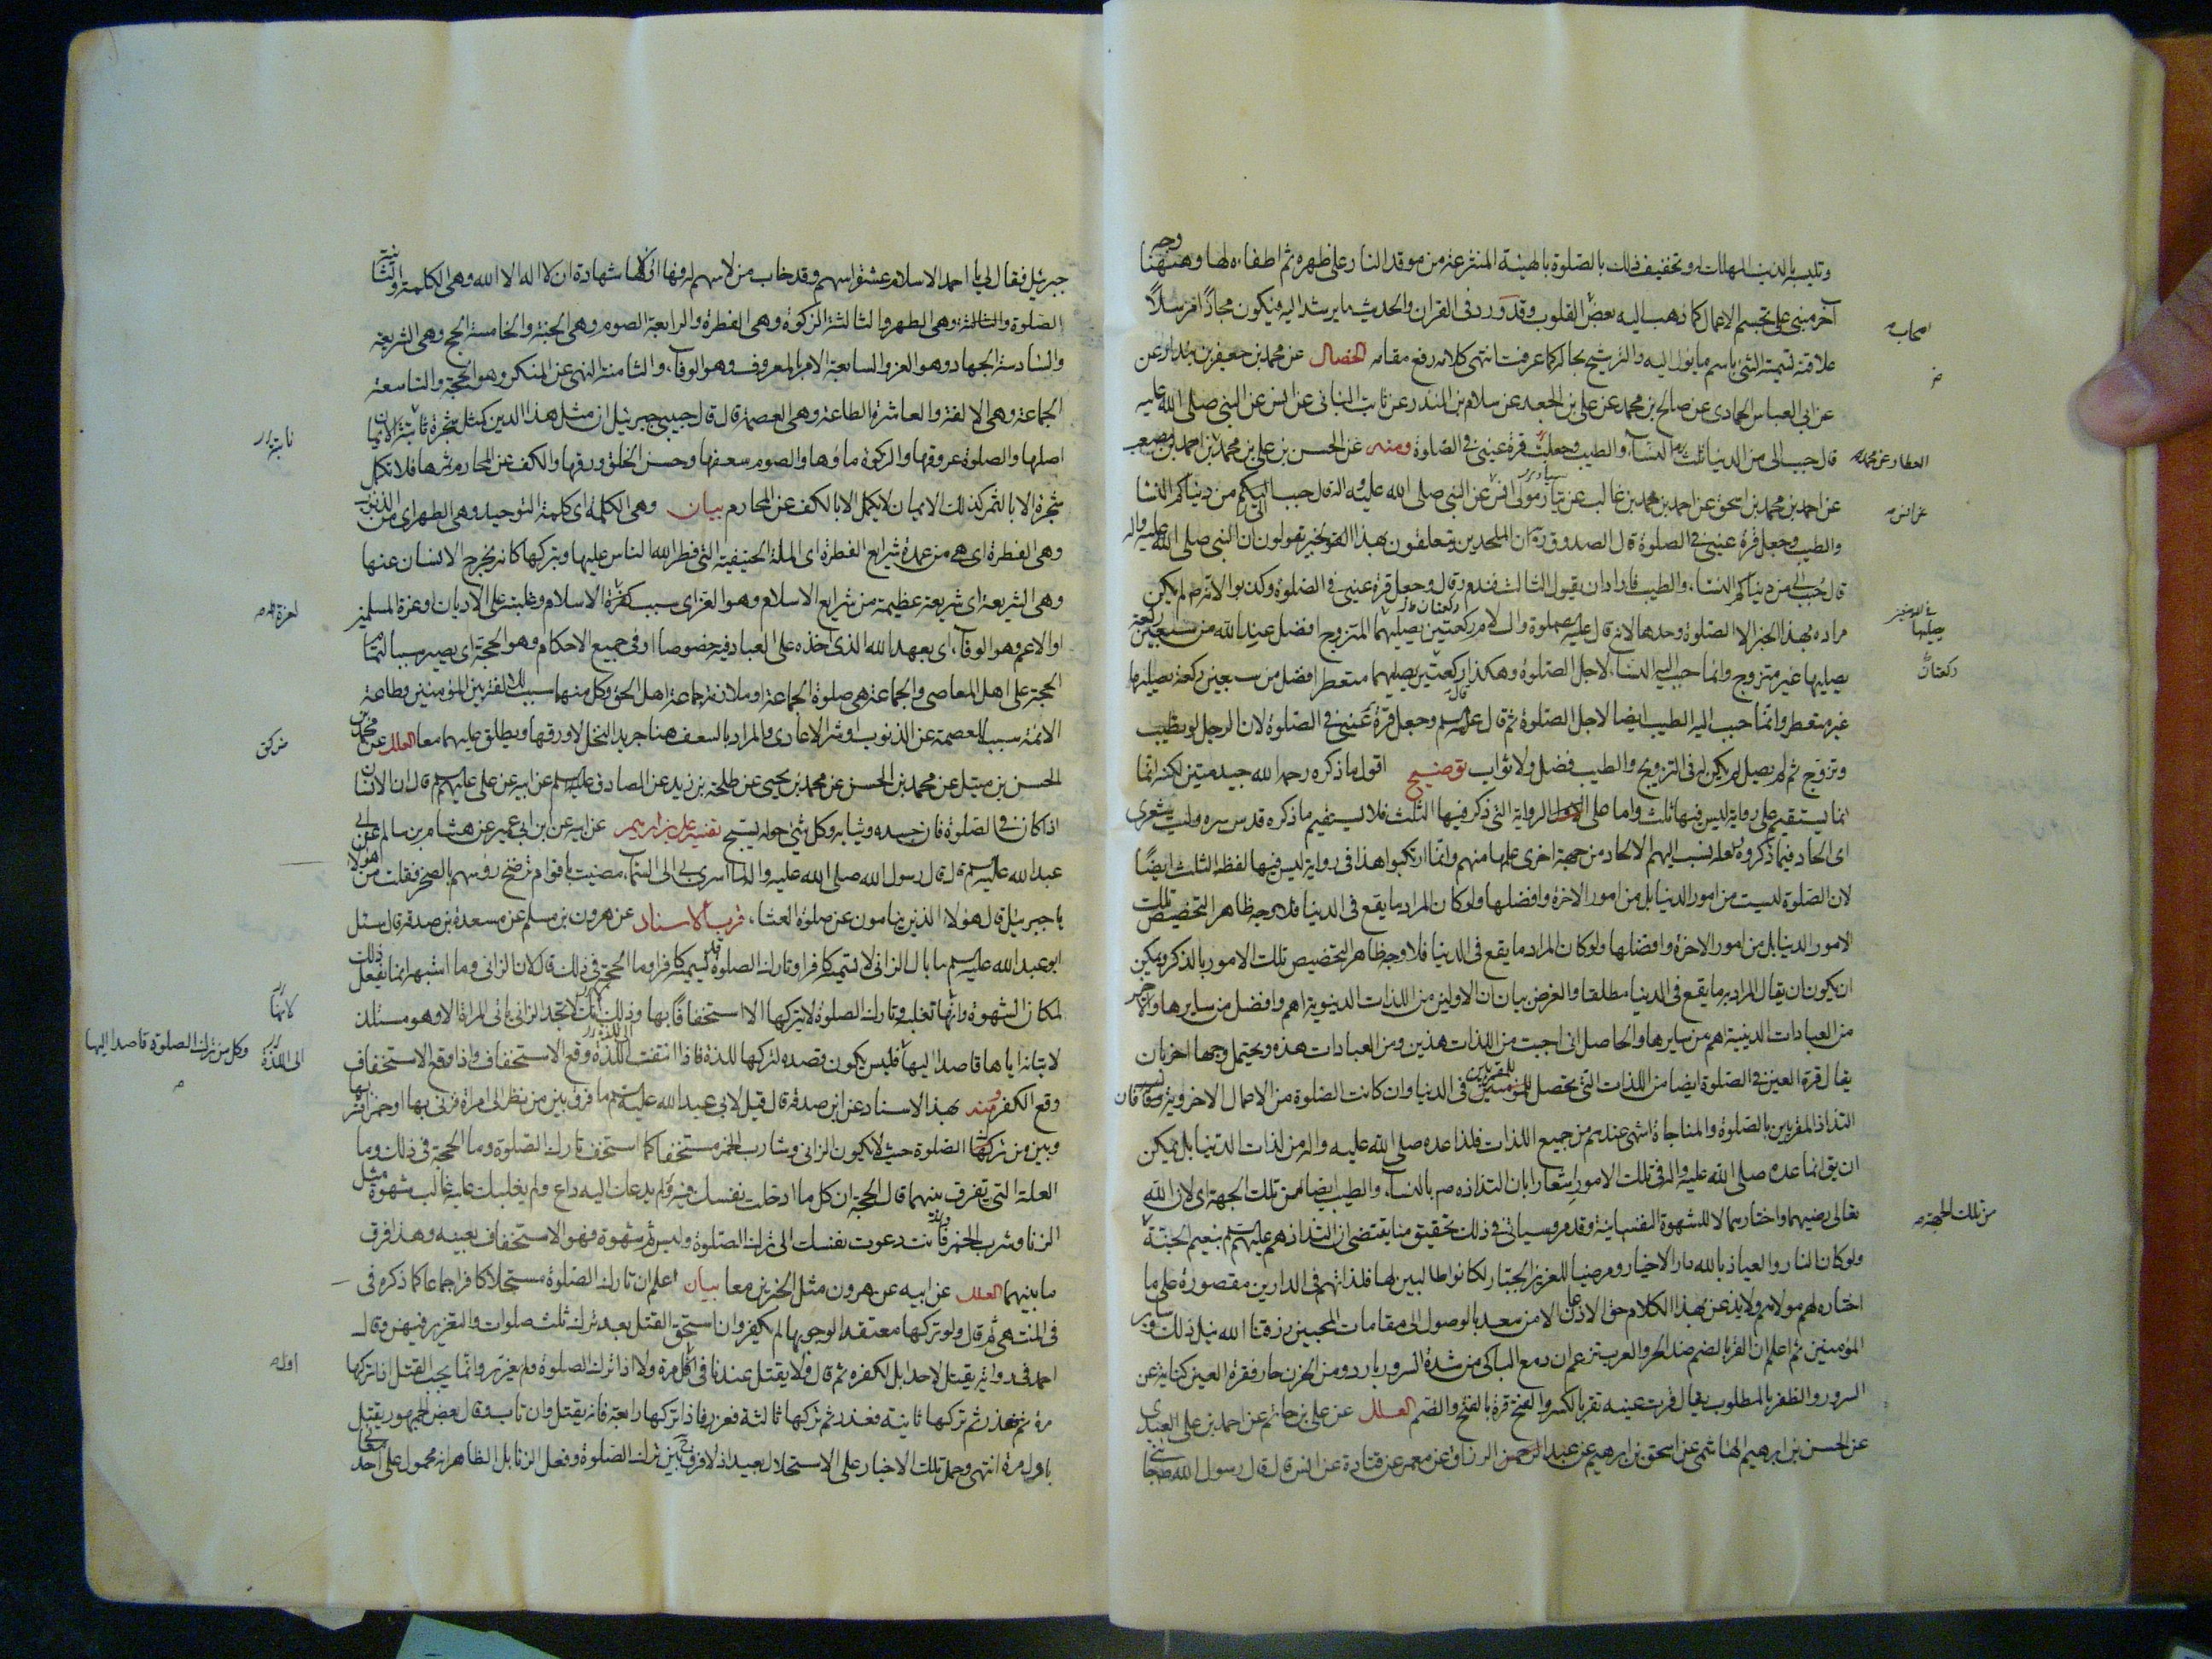 وتلبسه بالذنب المهلك له وتخفيف ذلك بالصلوة بالهيئة المنتزعة من موقد النار على ظهره ثم اطفاءه لها وههنا وجه
آخر مبنى على تجسم الاعمال كما ذهب اليه بعض القلوب وقد ورد فى القران والحديث ما يرشد اليه فيكون مجازا مرسلا
علاقته تسمية الشئ باسم ما يؤل اليه والترشيح بحاله كما عرفت انتهى كلامه رفع مقامه الخصال عن محمد بن جعفر بن بندار عن
عن ابى العباس الحمادى عن صالح بن محمد عن على بن الجعد عن سلام بن المنذر عن ثابت البنانى عن انس عن النبى صلى الله عليه
قال حبب الى من الدنيا ثلث النساء والطيب وجعلت قرة عينى فى الصلوة ومنه عن الحسن بن على بن محمد بن احمد بن مصعب
عن احمد بن محمد بن اسحق عن احمد بن محمد بن غالب عن يسار مولى انس عن النبى صلى الله عليه واله قال حبب الى من دنياكم النسا
والطيب وجعل قرة عينى فى الصلوة قال الصدوق ره ان الملحدين يتعلقون بهذا الخبر يقولون ان النبى صلى الله عليه واله
قال حبب الى من دنياكم النساء والطيب فاراد ان يقول الثالث فندم وقال وجعل قرة عينى فى الصلوة وكذبوا لانه لم يكن
مراده بهذا الخبر الا الصلوة وحدها لانه قال عليه الصلوة والسلام ركعتين يصليهما المتزوج افضل عند الله من سبعين ركعة
يصليها غير متزوج وانما حبب اليه النساء لاجل الصلوة وهكذا ركعتين يصليهما متعطر افضل من سبعين ركعة يصليها
غير متعطر وانما حبب اليه الطيب ايضا لاجل الصلوة ثم قال عليه السلم وجعل قرة عينى فى الصلوة لان الرجل لو تطيب
وتزوج ثم لم يصل لم يكن له فى التزويج والطيب فضل ولا ثواب توضيح اقول ما ذكره رحمه الله جيد متين لكنه انما
انما يستقيم على رواية ليس فيها ثلث واما على الرواية التى ذكر فيها الثلث فلا يستقيم ما ذكره قدس سره وليت شعرى
اى الحاد فيما ذكروه ولعله نسب اليهم الالحاد من جهة اخرى علمها منهم وانما ارتكبوا هذا فى رواية ليس فيها لفظ الثلث ايضا
لان الصلوة ليست من امور الدنيا بل من امور الاخرة وافضلها ولو كان المراد ما يقع فى الدنيا فلا وجه ظاهرا لتخصيص تلك
الامور الدنيا بل من امور الاخرة وافضلها ولو كان المراد ما يقع فى الدنيا فلا وجه ظاهر لتخصيص تلك الامور بالذكر ويمكن
ان يكون ان يقال المراد به ما يقع فى الدنيا مطلقا والغرض بيان ان الاولين من اللذات الدينوية اهم وافضل من سايرها والاخير
من العبادات الدينية اهم من سايرها والحاصل انى احببت من اللذات هذين ومن العبادات هذه ويحتمل وجها اخر بان
يقال قرة العين فى الصلوة ايضا من اللذات التى تحصل للمقربين فى الدنيا وان كانت الصلوة من الاعمال الاخروية فان
التذاذ المقربين بالصلوة والمناجاة اشهى عندهم من جميع اللذات فلذا عده صلى الله عليه واله من لذات الدنيا بل يمكن
ان يق انما عده صلى الله عليه واله فى تلك الامور اشعارا بان التذاذه ص بالنساء والطيب ايضا من تلك الجهة اى لان الله
تعالى رضيهما واختارهما لا للشهوة النفسانية وقد مر وسياتى فى ذلك تحقيق منا يقتضى ان التذاذهم عليهم السلم بنعيم الجنة
ولو كان النار والعياذ بالله دار الاخيار ومرضيا للعزيز الجبار لكانوا طالبين لها فلذاتهم فى الدارين مقصورة على ما
اختاره لهم مولاهم ولا يذعن بهذا الكلام حق الاذعان الا من سعد بالوصول الى مقامات المحبين رزقنا الله نيل ذلك وساير
المؤمنين ثم اعلم ان القر بالضم ضد الحر والعرب تزعم ان دمع الباكى من شدة السرور بارد ومن الحزن حار فقرة العين كناية عن
السرور والظفر بالمطلوب يقال قرت عينه تقر بالكسر والفتح قرة بالفتح والضم العلل عن على بن حاتم عن احمد بن على العبدى
عن الحسن بن ابرهيم الهاشمى عن اسحق بن ابرهيم عن عبد الرحمن الرزاق عن معمر عن قتادة عن انس قال قال رسول الله ص جاءنى
اصحاب
العطار عن محمد
عن انس
يصليها
ركعتان
من تلك الجهة
جبرئيل فقال لى يا احمد الاسلام عشرة اسهم وقد خاب من لا سهم له فيها اولها شهادة ان لا اله الا الله وهى الكلمة والثانية
الصلوة وهى الطهر والثالثة الزكوة وهى الفطرة والرابعة الصوم وهى الجنة والخامسة الحج وهى الشريعة
والسادسة الجهاد وهو العز والسابعة الامر بالمعروف وهو الوفاء والثامنة النهى عن المنكر وهو الحجة والتاسعة
الجماعة وهى الالفة والعاشرة الطاعة وهى العصمة قال قال حبيبى جبرئيل ان مثل هذا الدين كمثل شجرة ثابتة الايمان
اصلها والصلوة عروقها والزكوة ماؤها والصوم سعفها وحسن الخلق ورقها والكف عن المحارم ثمرها فلا تكمل
شجرة الا بالثمر كذلك الايمان لا يكمل الا بالكف عن المحارم بيان وهى الكلمة اى كلمة التوحيد وهى الطهر اى من الذنوب
وهى الفطرة اى هى من عمدة شرايع الفطرة اى الملة الحنيفية التى فطر الله الناس عليها وبتركها كانه يخرج الانسان عنها
وهى الشريعة اى شريعة عظيمة من شرايع الاسلام وهو العز اى سبب لعزة الاسلام وغلبته على الاديان او عزة المسلمين
او الاعم وهو الوفاء اى بعهد الله الذى اخذه على العباد فيه خصوصا او فى جميع الاحكام وهو الحجة اى يصير سببا لتمام
الحجة على اهل المعاصى والجماعة هى صلوة الجماعة او ملازمة جماعة اهل الحق وكل منها سبب للالفة بين المؤمنين وطاعة
الائمة سبب للعصمة عن الذنوب او شر الاعادى والمراد بالسعف هنا جريد النخل لا ورقها ويطلق عليهما معا العلل عن محمد بن
الحسن بن متيل عن محمد بن الحسن عن محمد بن يحيى عن طلحة بن زيد عن الصادق عليه السلم عن ابيه عن على عليهم السلم قال ان الانسان
اذا كان فى الصلوة فان جسده وثيابه وكل شئ حوله يسبح تفسير على بن ابرهيم عن ابيه عن ابن ابى عمير عن هشام بن سالم عن ابى
عبد الله عليه السلم قال قال رسول الله صلى الله عليه واله لما اسرى بى الى السماء مضيت باقوام ترضخ رؤسهم بالصخر فقلت من هؤلاء
يا جبرئيل قال هؤلاء الذين ينامون عن صلوة العشاء قرب الاسناد عن هرون بن مسلم عن مسعدة بن صدقة قال سئل
ابو عبد الله عليه السلم ما بال الزانى لا تسميه كافرا وتارك الصلوة قد تسميه كافرا وما الحجة فى ذلك قال لان الزانى وما اشبهه انما يفعل ذلك
لمكان الشهوة وانها تغلبه وتارك الصلوة لا يتركها الا استخفافا بها وذلك انك لا تجد الزانى ياتى المراة الا وهو مستلذ
لاتيانه اياها قاصدا اليها فليس يكون قصده لتركها للذة فاذا انتفت اللذة وقع الاستخفاف واذا وقع الاستخفاف
وقع الكفر ومنه بهذا الاسناد عن ابن صدقة قال قيل لابى عبد الله عليه السلم ما فرق بين من نظر الى امراة فزنى بها او خمر فشربها
وبين من ترك الصلوة حيث لا يكون الزانى وشارب الخمر مستخفا كما استخف تارك الصلوة وما الحجة فى ذلك وما
العلة التى تفرق بينهما قال الحجة ان كل ما ادخلت نفسك فيه ولم يدعك اليه داع ولم يغلبك عليه غالب شهوة مثل
الزنا وشرب الخمر فانت دعوت نفسك الى ترك الصلوة وليس ثم شهوة فهو الاستخفاف بعينه وهذا فرق
ما بينهما العلل عن ابيه عن هرون مثل الخبرين معا بيان اعلم ان تارك الصلوة مستحلا كافر اجماعا كما ذكره فى
فى المنتهى ثم قال ولو تركها معتقدا لوجوبها لم يكفر وان استحق القتل بعد ترك ثلث صلوات والتعزير فيهن وقال
احمد فى رواية يقتل لا حدا بل لكفره ثم قال ولا يقتل عندنا فى اول مرة ولا اذا ترك الصلوة ولم يعزر وانما يجب القتل اذا تركها
مرة فعزر ثم تركها ثانية فعزر ثم تركها ثالثة فعزر فاذا تركها رابعة فانه يقتل وان تاب وقال بعض الجمهور يقتل
باول مرة انتهى وحمل تلك الاخبار على الاستحلال بعيد اذ لا فرق ح بين ترك الصلوة وفعل الزنا بل الظاهر انه محمول على احد معانى
لانها
الى اللذة
وكل من ترك الصلوة قاصدا اليها
اول